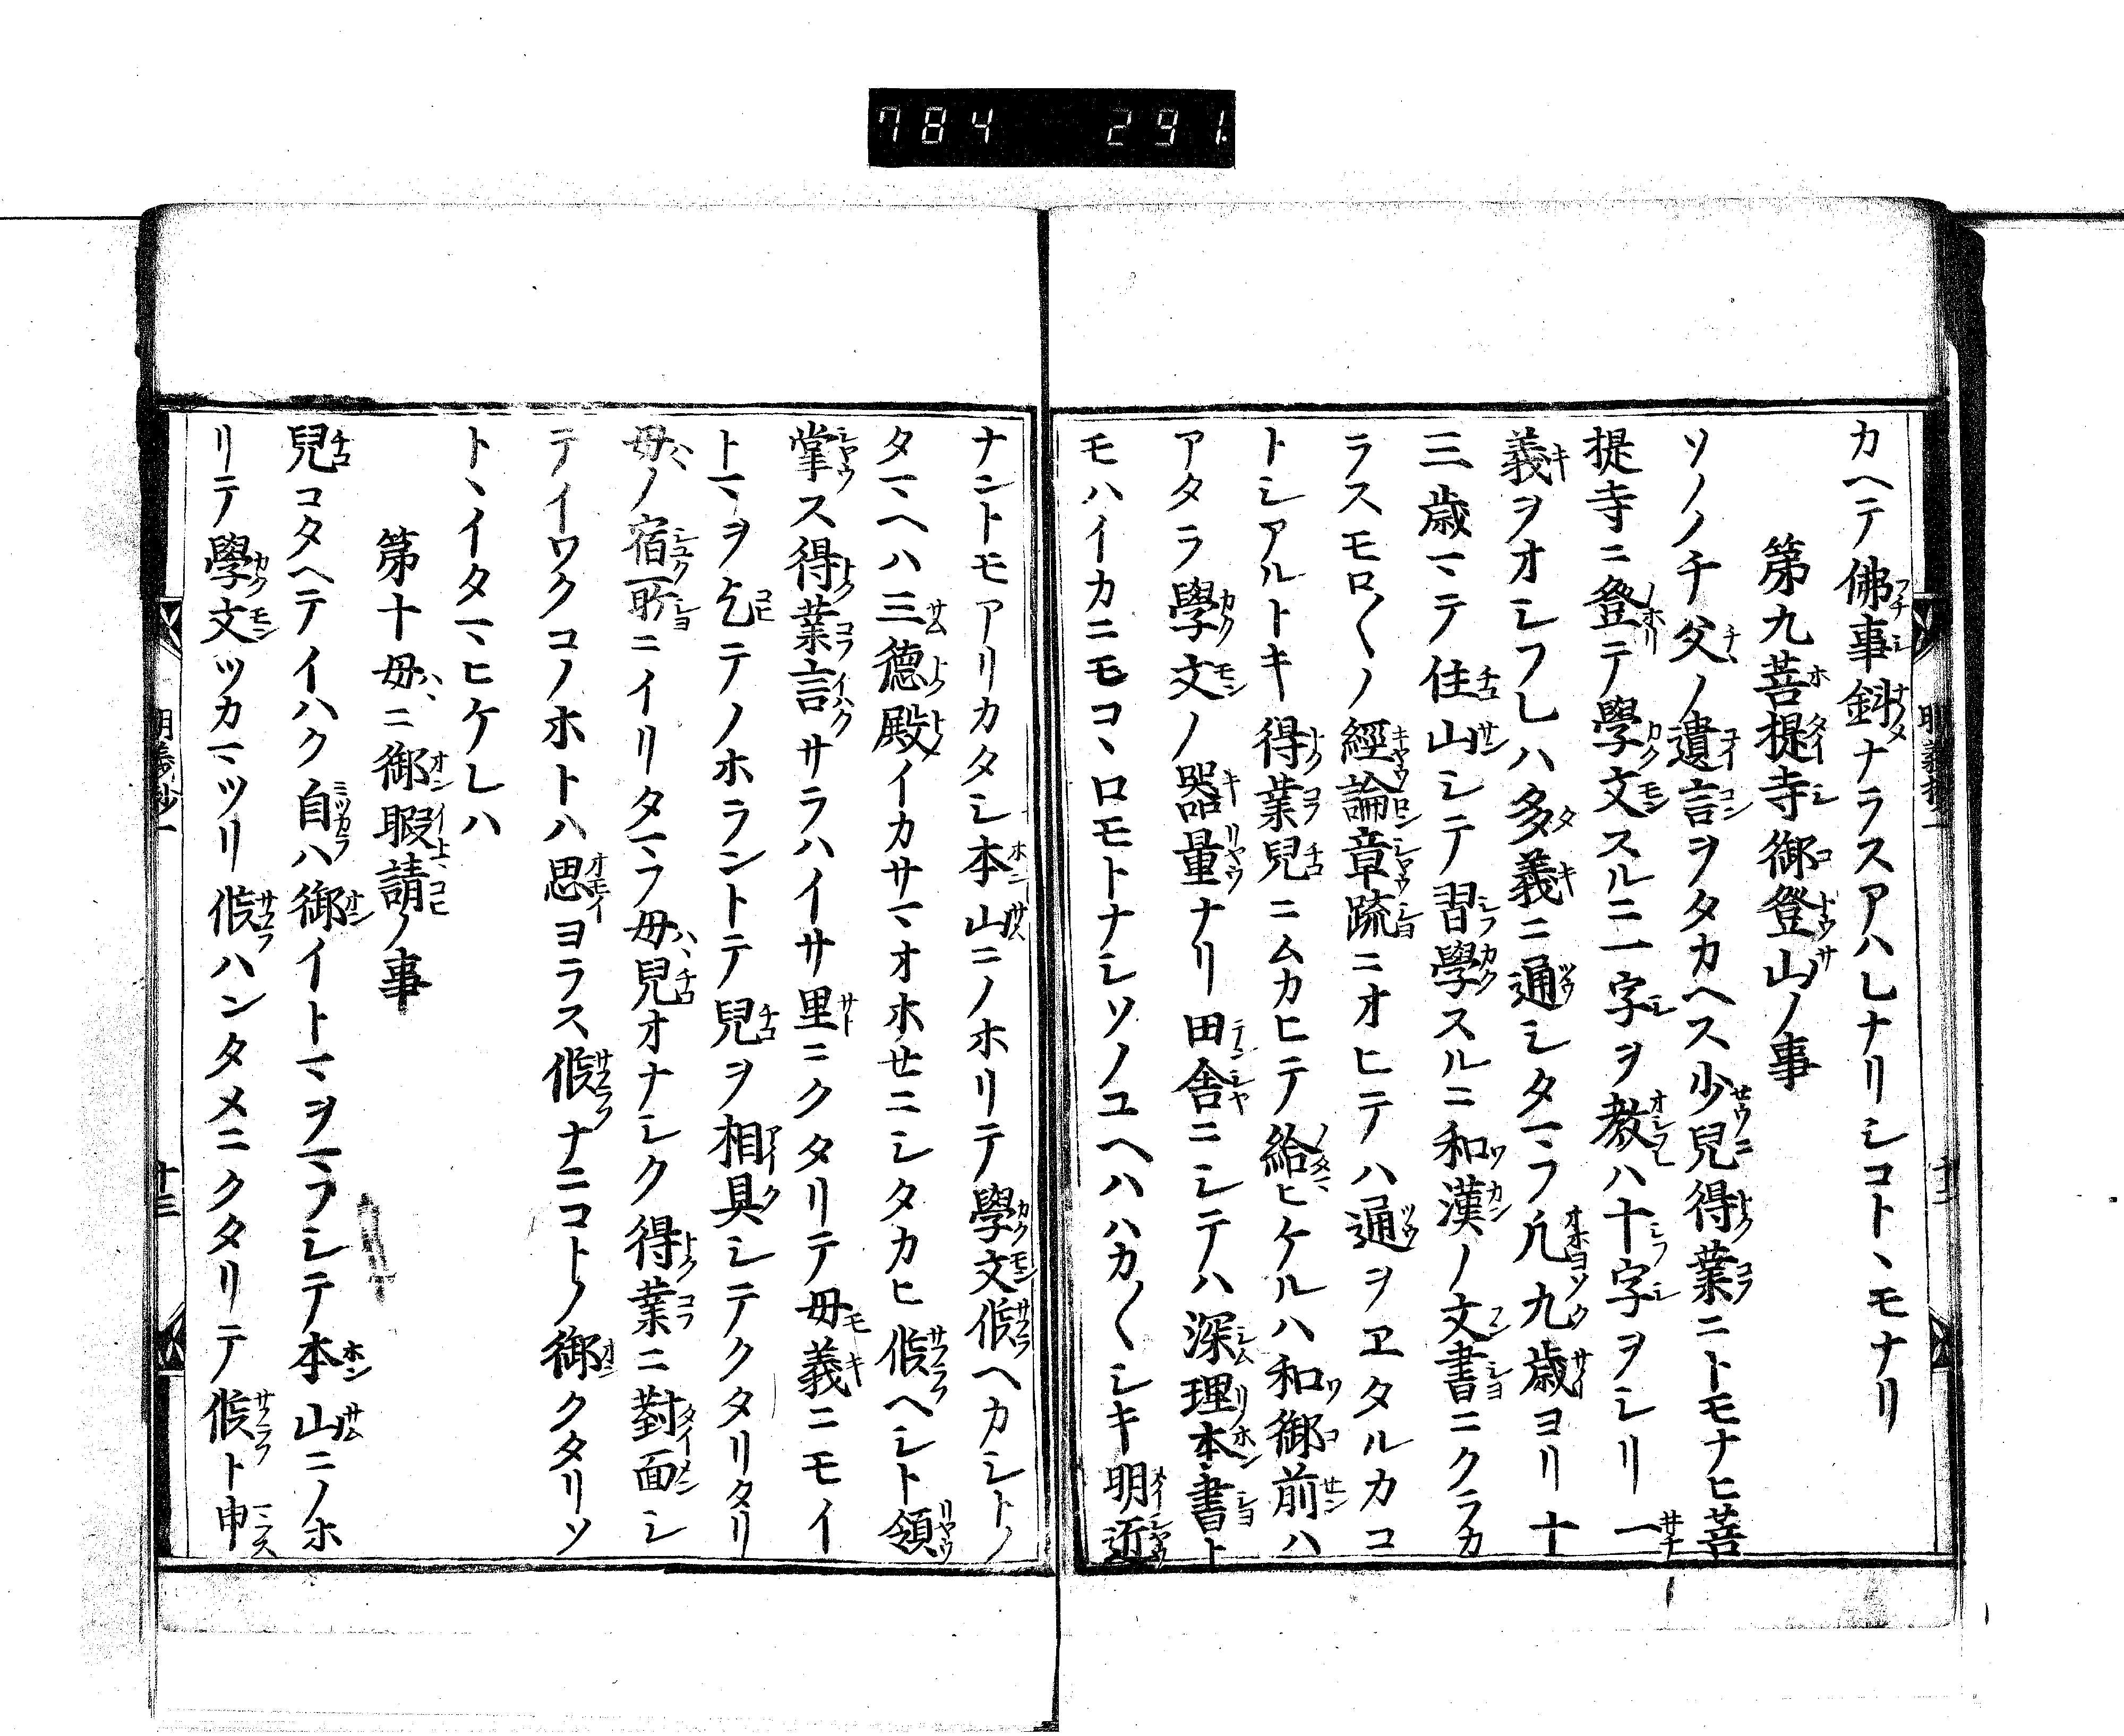 784 291
カヘテ佛事斜ナラスアハレナリシコトヽモナリ
第九菩提寺御登山ノ事
ソノノチ父ノ遺言ヲタカヘス少兒得業ニトモナヒ菩
提寺ニ登テ學文スルニ一字ヲ教ハ十字ヲシリ一
義ヲオシフレハ多義ニ通シタマフ凢九歳ヨリ十
三歳マテ住山シテ習學スルニ和漢ノ文書ニクラカ
ラスモロ〱ノ經論章䟽ニオヒテハ通ヲヱタルカコ
トシアルトキ得業兒ニムカヒテ給ヒケルハ和御前ハ
アタラ學文ノ器量ナリ田舎ニシテハ深理本書ト
モハイカニモコヽロモトナシソノユヘハハカ〱シキ明近
ナントモアリカタシ本山ニノホリテ學文候ヘカシトノ
タマヘハ三德殿イカサマオホセニシタカヒ候ヘシト領
掌ス得業言サラハイサ里ニクタリテ毋義ニモイ
トマヲ乞テノホラントテ兒ヲ相具シテクタリタリ
毋ノ宿所ニイリタマフ毋兒オナシク得業ニ對面シ
テイワクコノホトハ思ヨラス候ナニコトノ御クタリソ
トヽイタマヒケレハ
第十毋ニ御暇請ノ事
兒コタヘテイハク自ハ御イトマヲマフシテ本山ニノホ
リテ學文ツカマツリ候ハンタメニクタリテ候ト申
明義抄一
十三